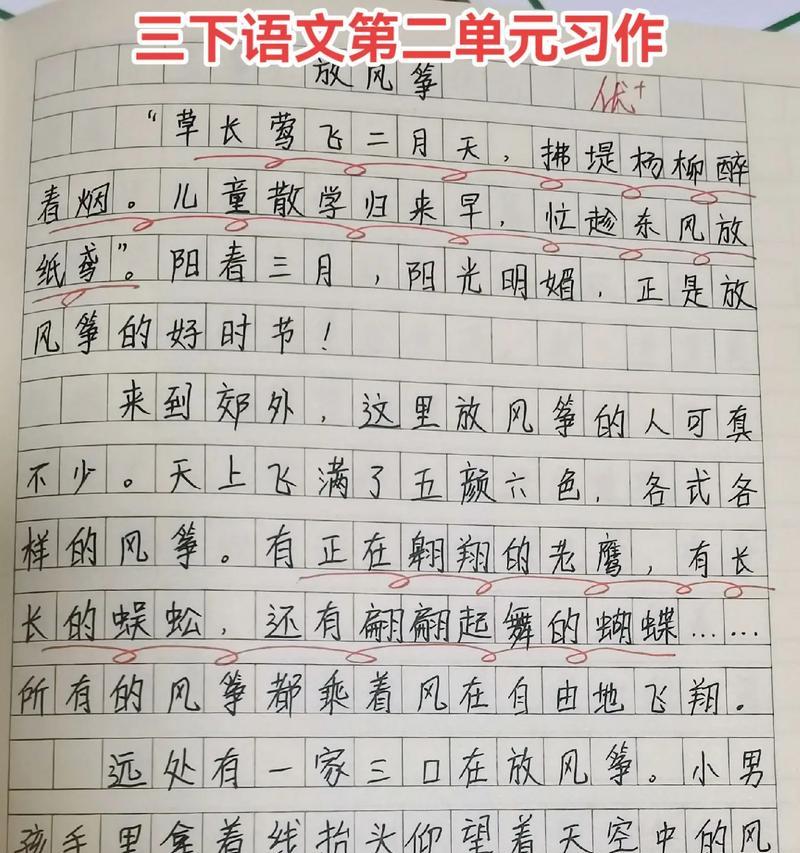 三下语文第二单元习作
放风筝
优+
“草长莺飞二月天，拂堤杨柳醉
春烟。儿童散学归来早，忙趁东风放
纸鸢”。阳春三月，阳光明媚，正是放
风筝的好时节！
来到郊外，这里放风筝的人可真
不少。天上飞满了五颜六色，各式各
样的风筝。有正在翱翔的老鹰，有长
长的蜈蚣，还有翩翩起舞的蝴蝶……
所有的风筝都乘着风在自由地飞翔。
远处有一家三口在放风筝。小男
孩手里拿着线抬头仰望着天空中的风